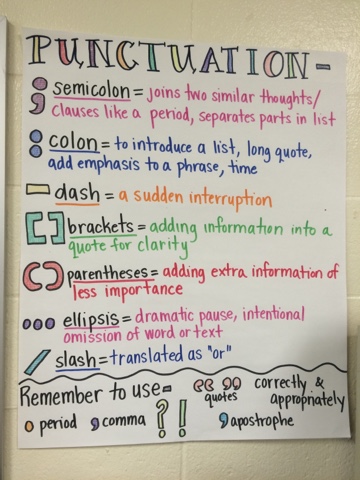 PUNCTUATION-
; semicolon = joins two similar thoughts/
clauses like a period, separates parts in list
: colon = to introduce a list, long quote,
add emphasis to a phrase, time
— dash = a sudden interruption
[] brackets = adding information into a
quote for clarity
() parentheses = adding extra information of
less importance
... ellipsis = dramatic pause, intentional
omission of word or text
/ slash = translated as "or"
Remember to use- “ ” quotes correctly &
appropriately
. period , comma ? ! ' apostrophe